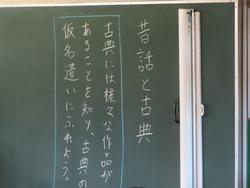 昔話と古典
古典には様々な作品が
あることを知り、古典の
仮名遣いにふれよう。